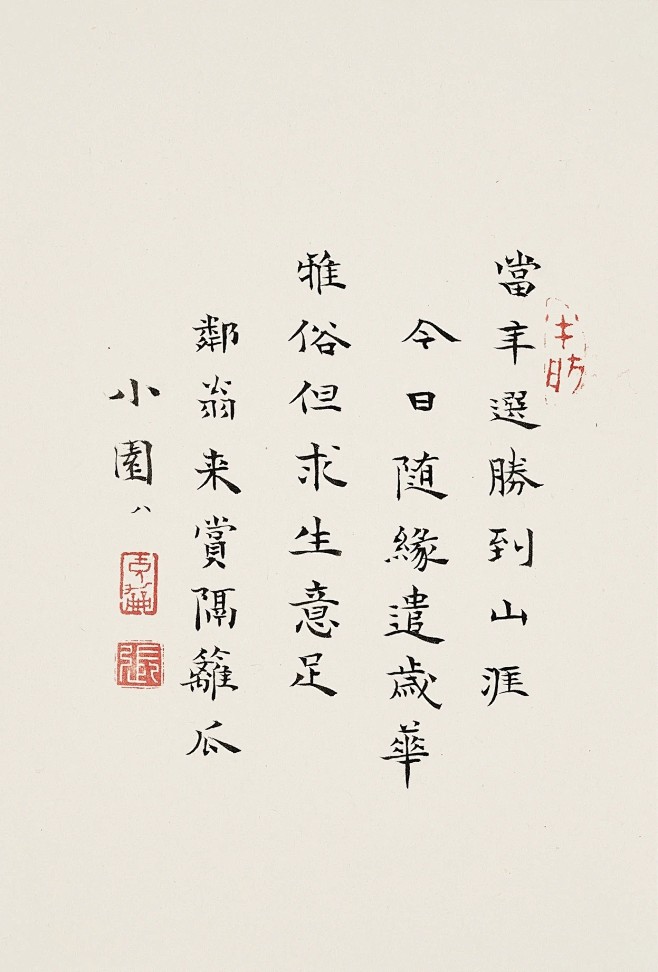 當年選勝到山涯
今日随緣遣歳華
雅俗但求生意足
鄰翁来賞隔籬瓜
小園 八
張